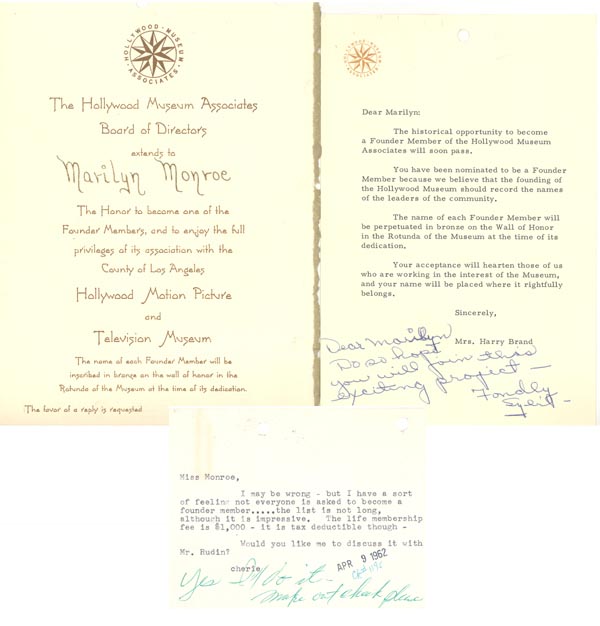 HOLLYWOOD · MUSEUM
· ASSOCIATES ·
The Hollywood Museum Associates
Board of Directors
extends to
Marilyn Monroe
The Honor to become one of the
Founder Members, and to enjoy the full
privileges of its association with the
County of Los Angeles
Hollywood Motion Picture
and
Television Museum
The name of each Founder Member will be
inscribed in bronze on the wall of honor in the
Rotunda of the Museum at the time of its dedication.
The favor of a reply is requested
HOLLYWOOD MUSEUM
ASSOCIATES
Dear Marilyn:
The historical opportunity to become
a Founder Member of the Hollywood Museum
Associates will soon pass.
You have been nominated to be a Founder
Member because we believe that the founding of
the Hollywood Museum should record the names
of the leaders of the community.
The name of each Founder Member will
be perpetuated in bronze on the Wall of Honor
in the Rotunda of the Museum at the time of its
dedication.
Your acceptance will hearten those of us
who are working in the interest of the Museum,
and your name will be placed where it rightfully
belongs.
Sincerely,
Mrs. Harry Brand
Dear Marilyn
Do so hope
you will join this
exciting project —
Fondly
Miss Monroe,
I may be wrong - but I have a sort
of feeling not everyone is asked to become a
founder member.....the list is not long,
although it is impressive. The life membership
fee is $1,000 - it is tax deductible though -
Would you like me to discuss it with
Mr. Rudin?
cherie
APR 9 1962
Yes I'll do it —
make out check please